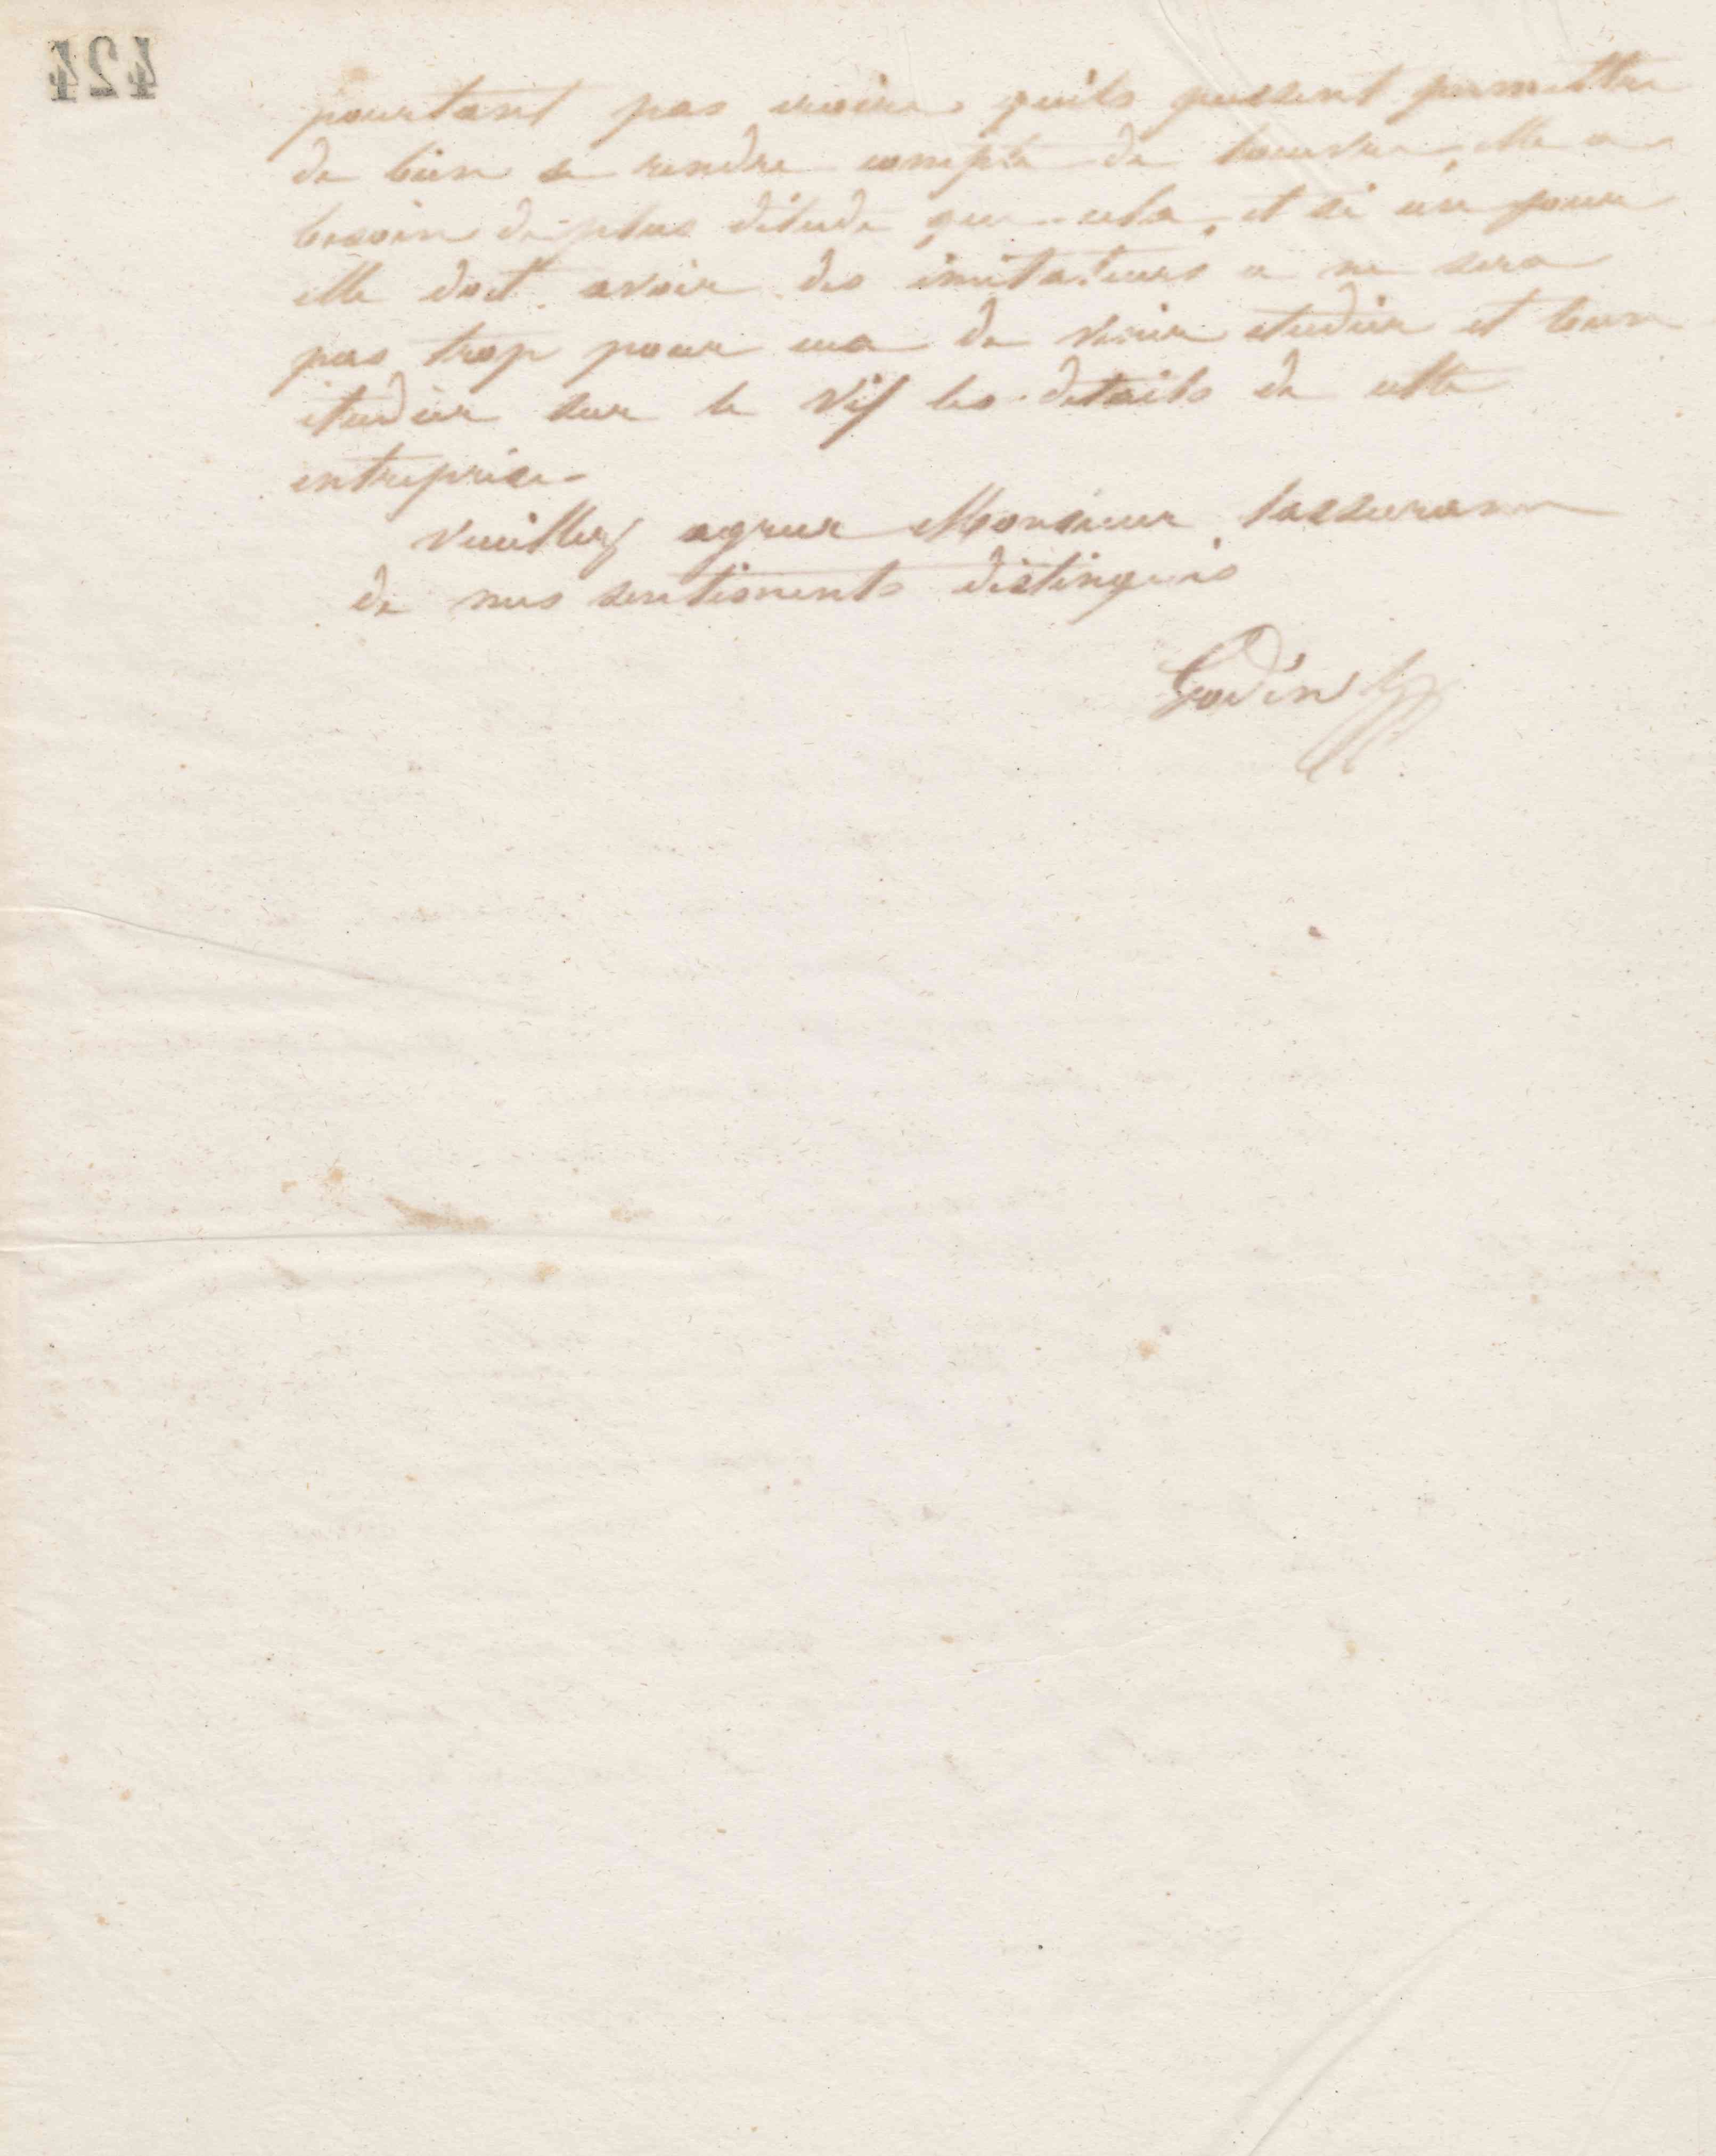 424
pourtant pas croire quils pussent permettre
de bien se rendre compte de loeuvre, elle a
besoin de plus détude que cela, et si un jour
elle doit avoir des imitateurs ce ne sera
pas trop pour eux de venir etudier et bien
étudier sur le vif les details de cette
entreprise
Veuillez agreer Monsieur lassurance
de mes sentiments distingués
Godin